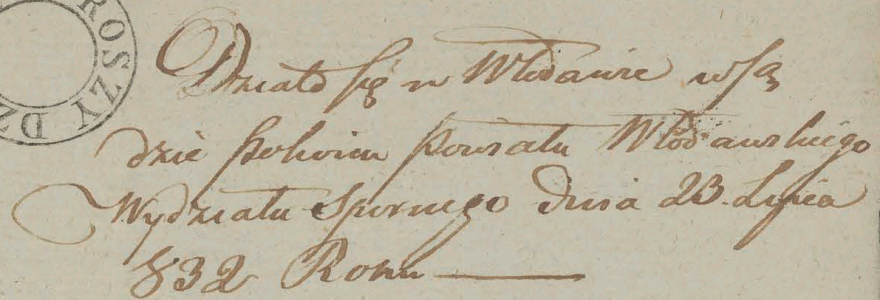 ROSZY DZ
Działo się w Włodawie w Są
dzie Pokoiu Powiatu Włodawskiego
Wydziału Spornego dnia 23 Lipca
832 Roku